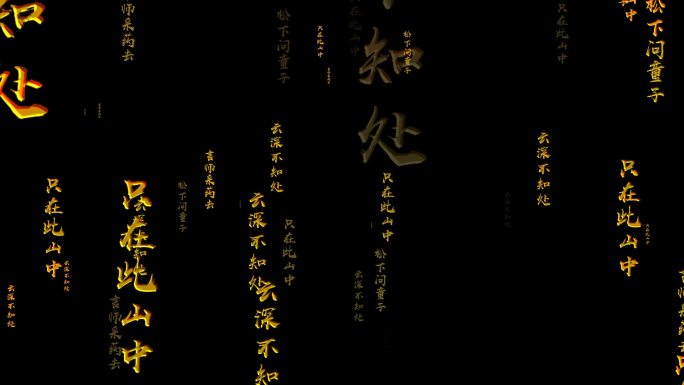 知处
师采药去
松下问童子
只在此山中
知处
松下问童子
只在此山中
松下问童子
山中
云深不知处
言师采药去
松下问童子
云深不知处
只在此山中
云深不知处
只在此山中
云深不知处
只在此山中
云深不知
只在此山中
松下问童子
云深不知处
只在此山中
云深不知处
言师采药去
言师采药